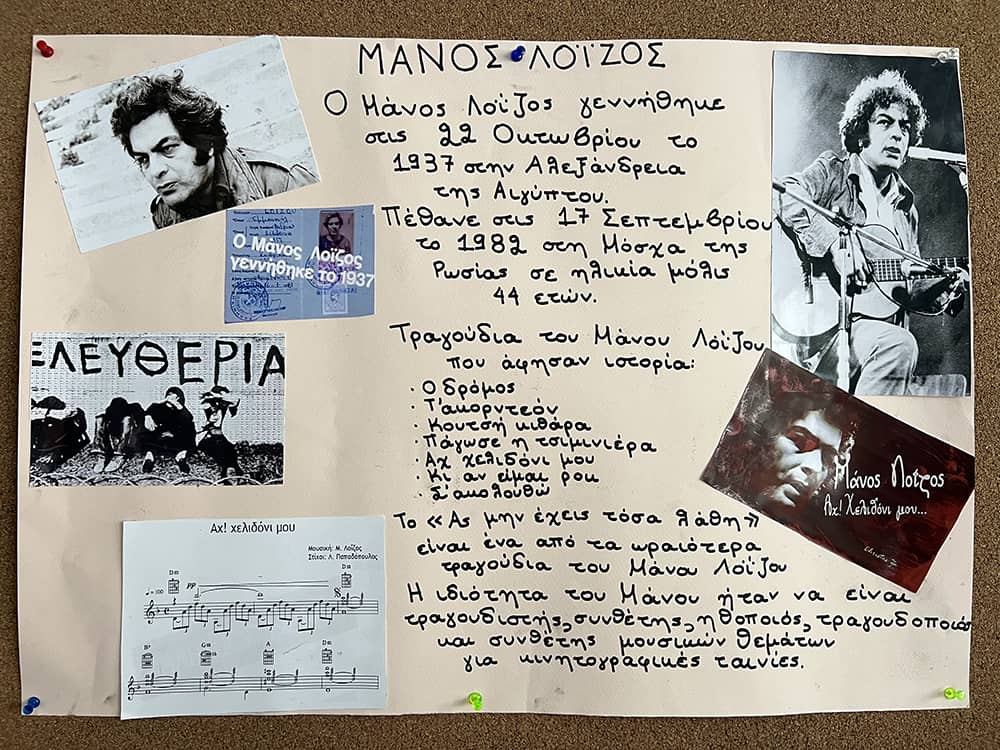 ΜΑΝΟΣ ΛΟΪΖΟΣ
Ο Μάνος Λοϊζος γεννήθηκε
στις 22 Οκτωβρίου το
1937 στην Αλεξάνδρεια
της Αιγύπτου.
Πέθανε στις 17 Σεπτεμβρίου
το 1982 στη Μόσχα της
Ρωσίας σε ηλικία μόλις
44 ετών.
Ο Μάνος Λοϊζος
γεννήθηκε το 1937
ΕΛΕΥΘΕΡΙΑ
Τραγούδια του Μάνου Λόιζου
που άφησαν ιστορία:
· Ο δρόμος
· Τ'ακορντεόν
· Κουτσή κιθάρα
· Πάγωσε η τσιμινιέρα
· Αχ χελιδόνι μου
· Κι αν είμαι ροκ
· Σ'ακολουθώ
Μάνος Λοΐζος
Αχ! Χελιδόνι μου...
Το «Ας μην έχεις τόσα λάθη»
είναι ένα από τα ωραιότερα
τραγούδια του Μάνα Λοϊζου
Η ιδιότητα του Μάνου ήταν να είναι
τραγουδιστής, συνθέτης, ηθοποιός, τραγουδοποιός
και συνθέτης μουσικών θεμάτων
για κινητογραφικές ταινίες.
Αχ! χελιδόνι μου
Μουσική: Μ. Λοΐζος
Στίχοι: Λ. Παπαδόπουλος
Dm
Dm
= 100
pp
Dm